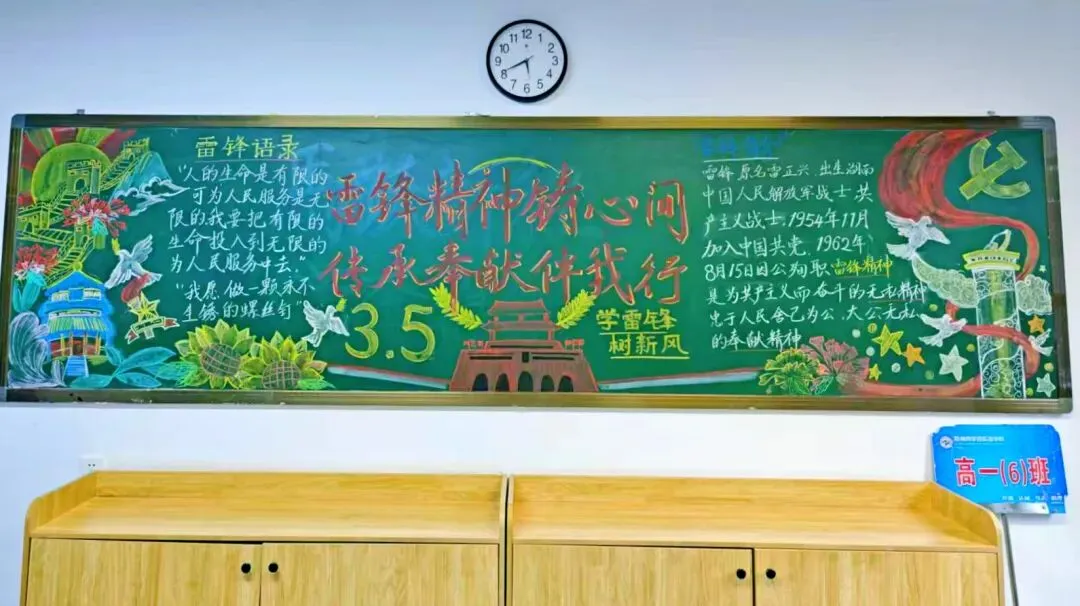 12 1 2 3 4 5 6 7 8 9 10 11
雷锋语录
"人的生命是有限的
可为人民服务是无
限的我要把有限的
生命投入到无限的
为人民服务中去."
"我愿做一颗永不
生锈的螺丝钉"
雷锋精神铸心间
传承奉献伴我行
3.5
学雷锋
树新风
雷锋 原名雷正兴 出生湖南
中国人民解放军战士.共
产主义战士,1954年11月
加入中国共党. 1962年
8月15日因公殉职 雷锋精神
是为共产主义而奋斗的无私精神
忠于人民舍己为公.大公无私
的奉献精神
高一(6)班